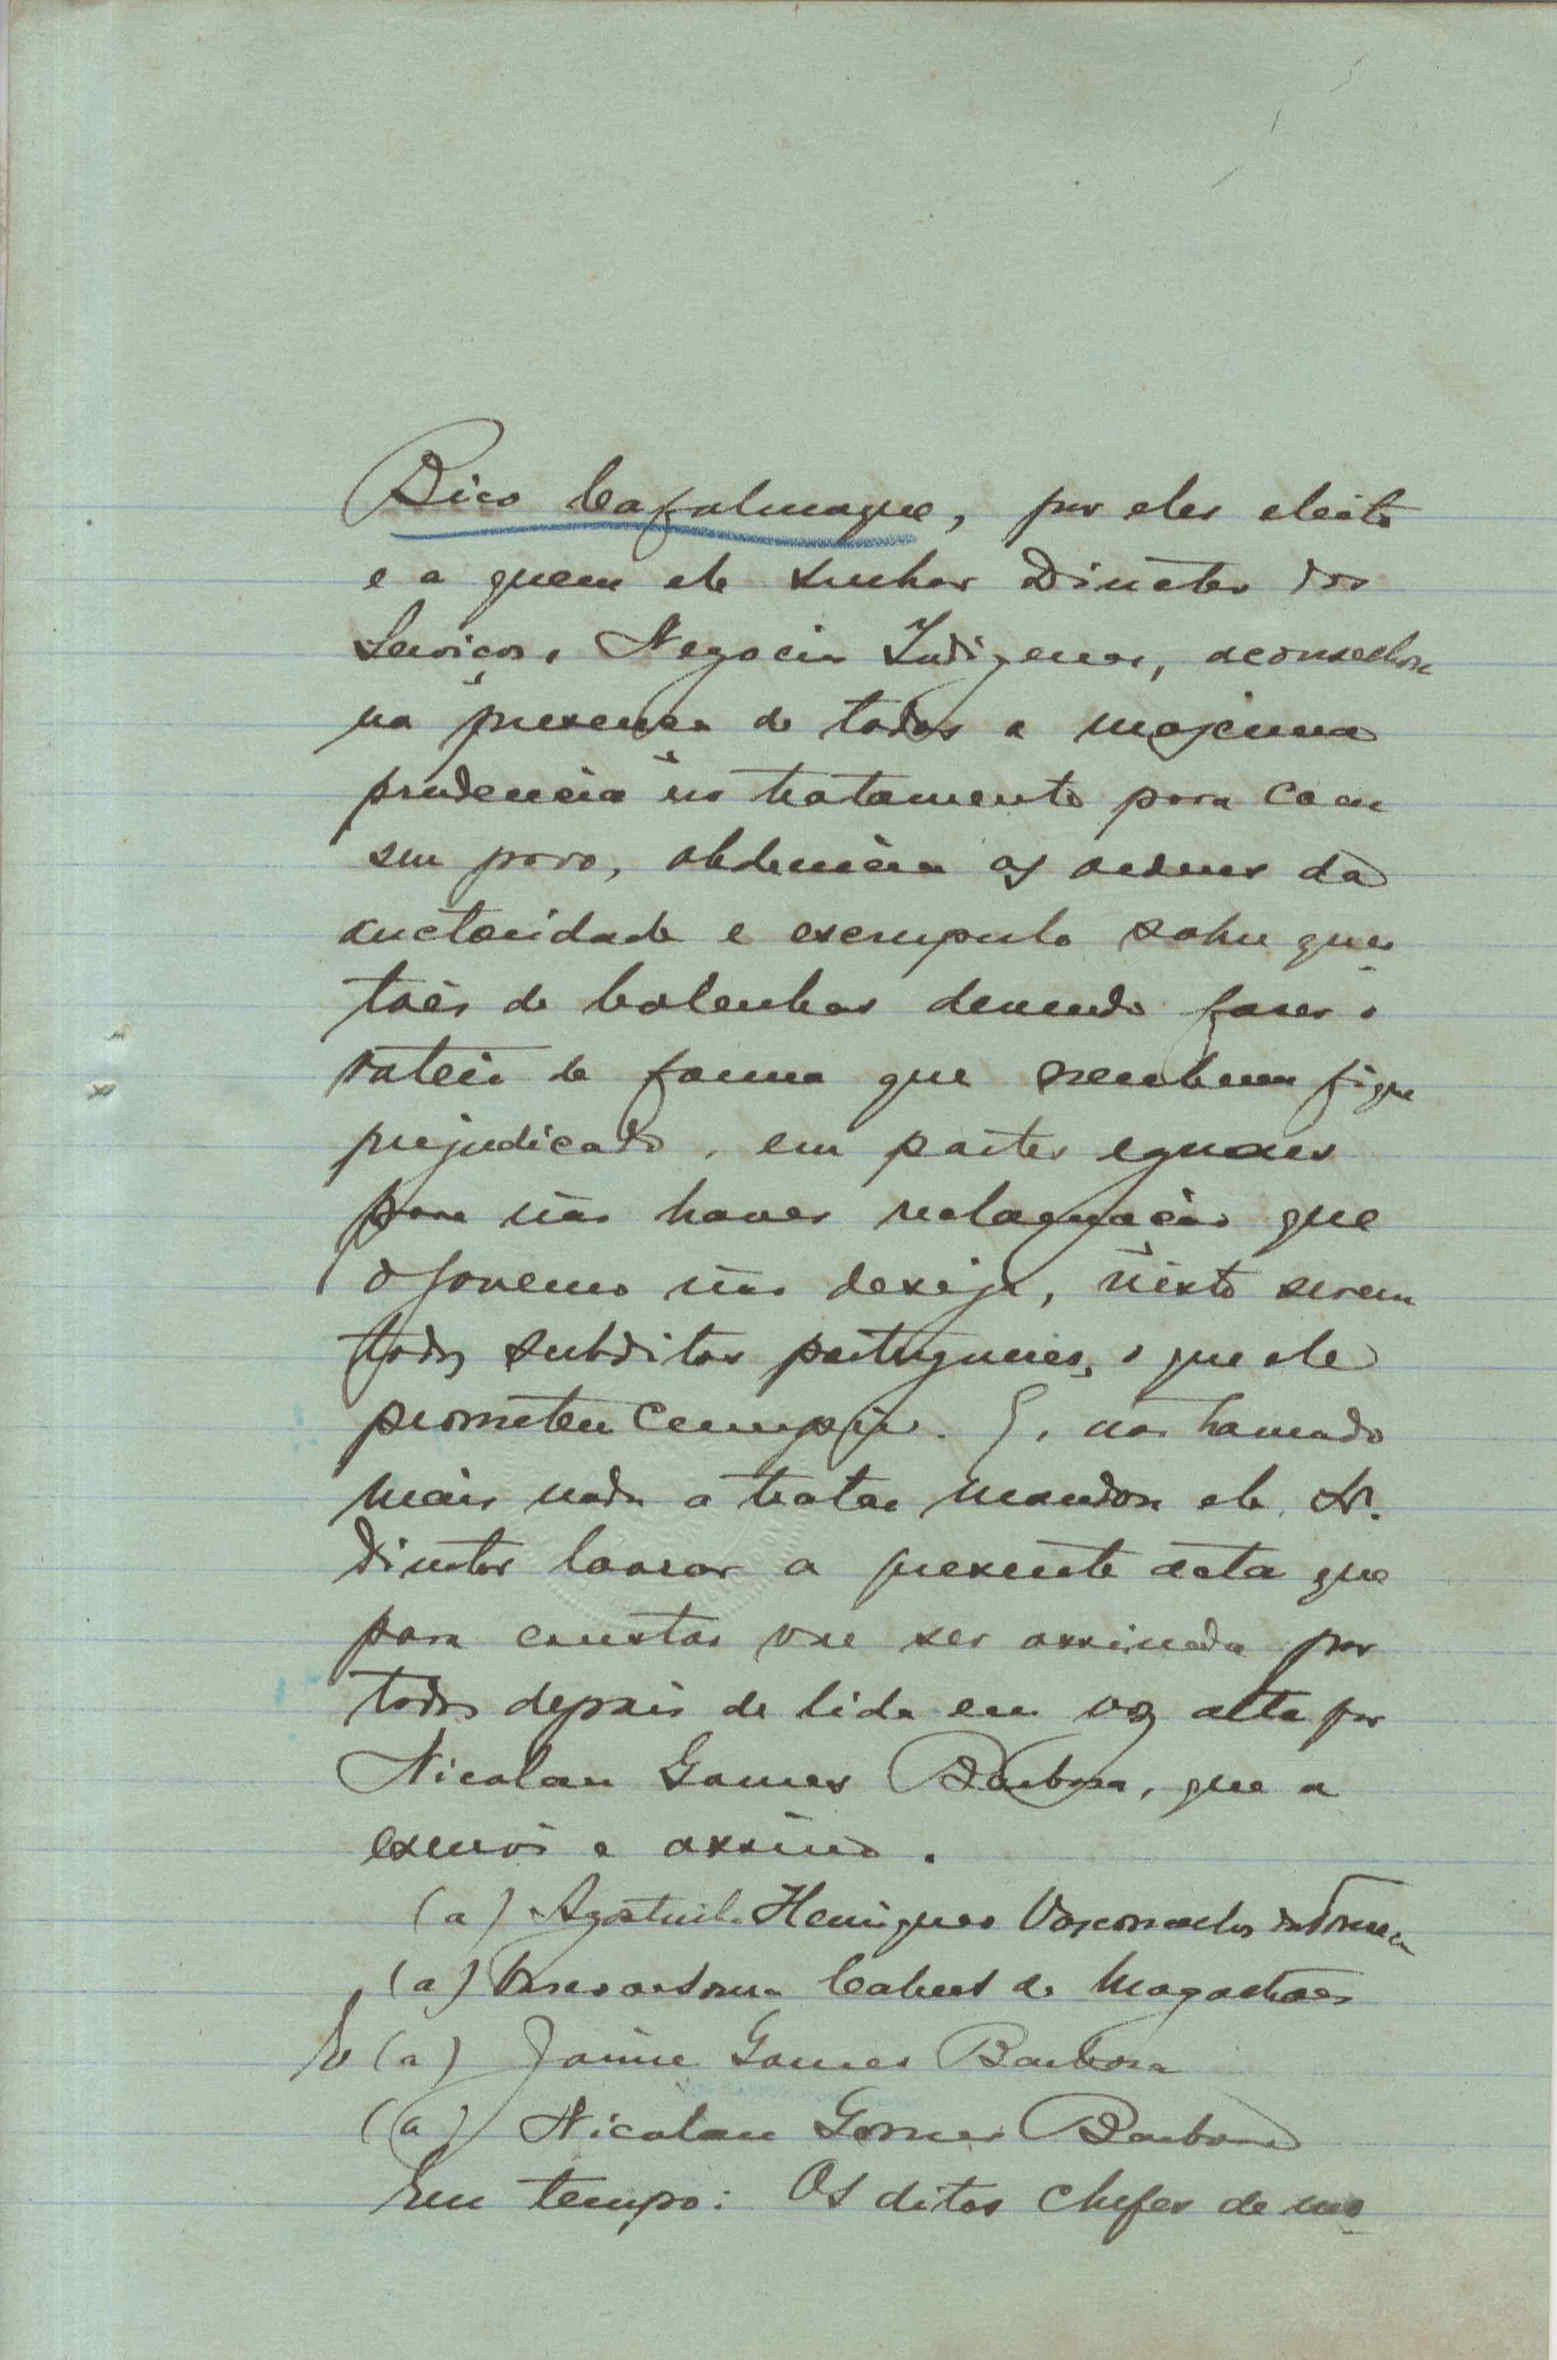 Bico Cafalmague, por eles eleito
e a quem ele senhor Director dos
Serviços e Negocios Indigenas, aconselhou
na presença de todos a maxima
prudencia no tratamento para com
seu povo, obdiencia as ordens da
auctoridade e escrupulo sobre ques
toēs de bolenhas devendo fazer o
rateio de forma que nenhum fique
prejudicado, em partes eguaes
para não haver reclamação que
o Governo não deseja, visto serem
todos subditos portuguezes, o que ele
prometeu cumprir. E, não havendo
mais nada a tratar mandou ele Sr.
Director lavrar a presente acta que
para constar vae ser assinada por
todos depois de lida em voz alta por
Nicolau Gomes Barbosa, que a
escrevi e assino.
(a) Agostinho Henriques Vasconcelos da Fonseca
(a) Cabral de Magalhães
(a) Jaime Gomes Barbosa
(a) Nicolau Gomes Barbosa
Em tempo: Os ditos chefes de mo